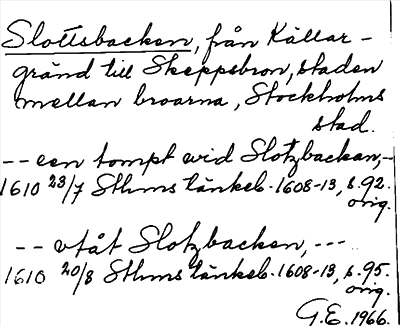 Slottsbacken, från Källar-
gränd till Skeppsbron, staden
mellan broarna, Stockholms
stad.
-- een tompt wid Slotzbackan,-
1610 23/7 Sthms tänkeb. 1608-13, s.92.
orig.
-- utåt Slotzbacken, ---
1610 20/8 Sthms tänkeb. 1608-13, s.95.
orig.
G.E. 1966.